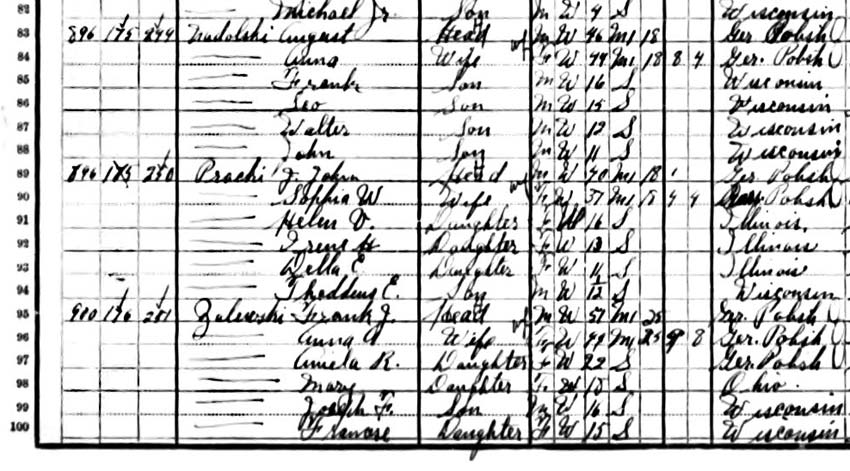 82 Michael Jr. Son M W 9 S Wisconsin
83 896 175 249 Nadolski August Head M W 46 M1 18 Ger Polish
84 —— Anna Wife F W 44 M1 18 8 4 Ger. Polish
85 —— Frank Son M W 16 S Wisconsin
86 —— Leo Son M W 15 S Wisconsin
87 —— Walter Son M W 12 S Wisconsin
88 —— John Son M W 11 S Wisconsin
89 896 175 250 Prochi J. John Head M W 40 M1 18 Ger. Polish
90 —— Sophia W Wife F W 37 M1 18 4 4 Polish
91 —— Helen V. Daughter F W 16 S Illinois.
92 —— Irene H Daughter F W 13 S Illinois
93 —— Della E Daughter F W 11 S Illinois
94 —— Thaddeus E. Son M W 12 S Wisconsin
95 900 176 251 Zalewski Frank J. Head M W 57 M1 25 Ger. Polish
96 —— Anna A Wife F W 49 M1 25 9 8 Ger. Polish
97 —— Amela R. Daughter F W 22 S Ger. Polish
98 —— Mary Daughter F W 18 S Ohio.
99 —— Joseph F. Son M W 16 S Wisconsin
100 —— Franose Daughter F W 15 S Wisconsin